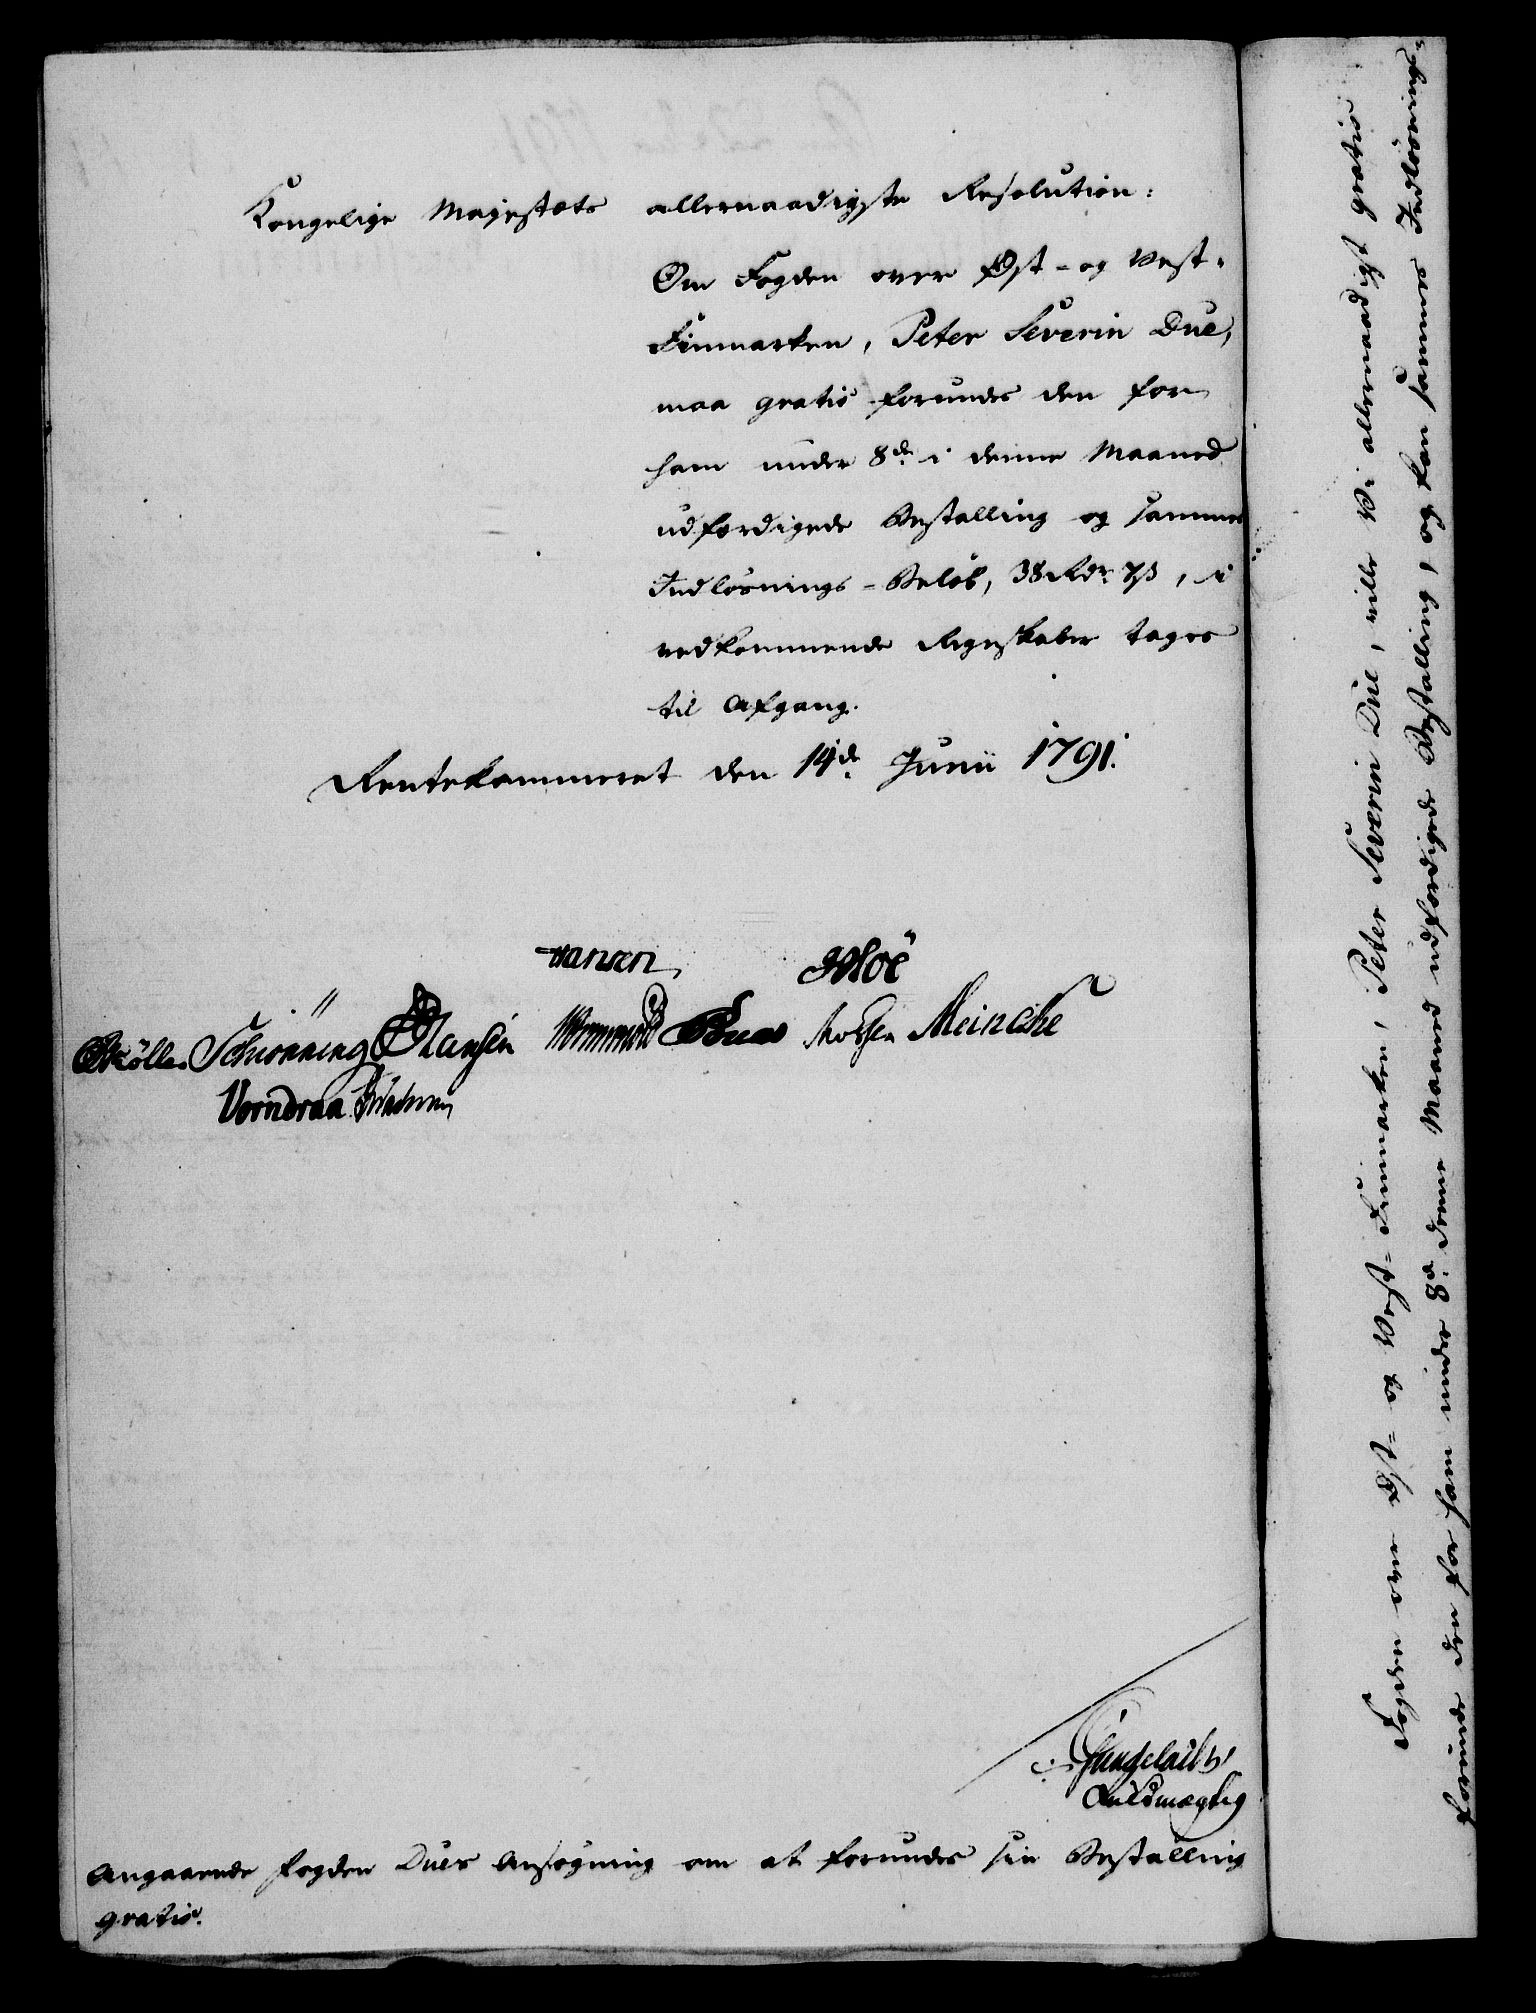 Kongelige Majestæts allernaadigste Resolution:
Om Fogden over Øst- og Vest-
Finmarken, Peter Severin Due,
maa gratis forundes den for
ham under 8de i denne Maaned
udfærdigede Bestalling og sammes
Indløsnings-Beløb, 38 Rdr. 7 ß, i
vedkommende Regnskaber tages
til Afgang.
Rentekammeret den 14de Junii 1791.
Hansen
Schiønning Hansen Wormwold Meincke
Vorndran
Angaaende Fogden Dues Ansøgning om at forundes sin Bestalling
gratis.
Fogden over Øst- og Vest-Finmarken, Peter Severin Due, ville Vi allernaadigst gratis
forunde den for ham under 8de denne Maaned udfærdigede Bestalling, og kan sammes Indløsnings-